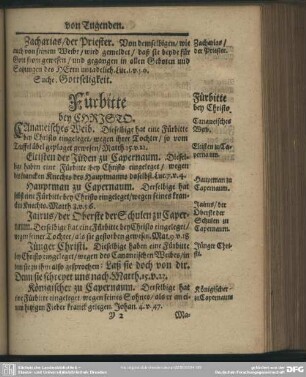 von Tugenden.
Zacharias/ der Priester. Von demselbigen/ wie
auch von seinem Weibe/ wird gemeldet/ daß sie beyde für
Gott from gewesen/ und gegangen in allen Geboten und
Satzungen des HErrn untadelich. Luc. 1. v. 5. 6.
Suche, Gottseligkeit.
Zacharias/
der Priester.
Fürbitte
bey CHRISTO.
Fürbitte
bey Christo.
CAnaneisches Weib. Dieselbige hat eine Fürbitte
bey Christo eingeleget/ wegen ihrer Tochter/ so vom
Teuffel übel geplaget gewesen/ Matth. 15. v. 22.
Cananeisches
Weib.
Eltesten der Jüden zu Capernaum. Diesel-
bige haben eine Fürbitte bey Christo eingeleget/ wegen
des krancken Knechts des Hauptmanns daselbst. Luc. 7. v. 4.
Eltesten zu Ca-
pernaum.
Hauptman zu Capernaum. Derselbige hat
eine Fürbitte bey Christo eingeleget/ wegen seines kran-
cken Knechts. Matth. 8. v. 5. 6.
Hauptman zu
Capernaum.
Jairus/ der Oberste der Schulen zu Caper-
naum. Derselbige hat eine Fürbitte bey Christo eingeleget/
wegen seiner Tochter/ als sie gestorben gewesen. Mat. 9. v. 18
Jairus/ der
Oberste der
Schulen zu
Capernaum.
Jünger Christi. Dieselbige haben eine Fürbitte
bey Christo eingeleget/ wegen des Cananeischen Weibes/ in-
dem sie zu ihm also gesprochen: Laß sie doch von dir.
Denn sie schreyet uns nach. Matth. 15. v. 23.
Jünger Chri-
sti.
Königischer zu Capernaum. Derselbige hat
eine Fürbitte eingeleget/ wegen seines Sohnes/ als er an ei-
nem hitzigen Fieber kranck gelegen. Johan. 4. v. 47.
Königischer
zu Capernaum
Y 2
Ma-